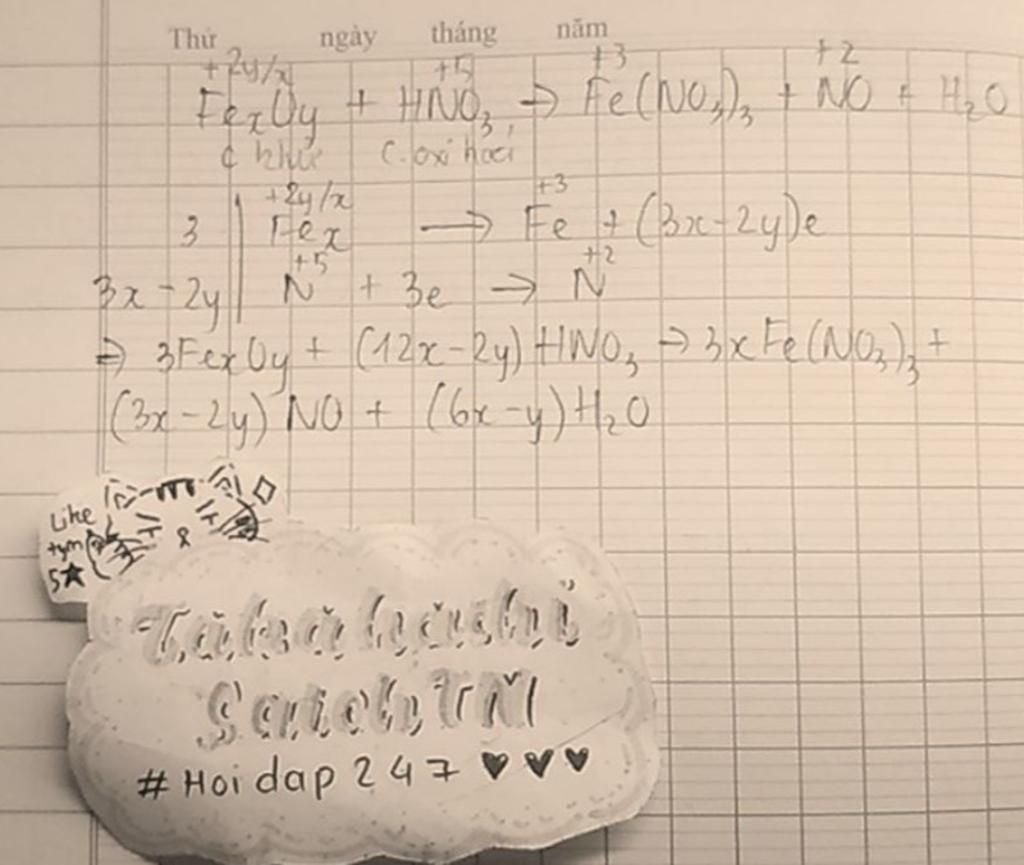 Thứ ngày tháng năm
+2y/x +5 +3 +2
FexOy + HNO3 → Fe(NO3)3 + NO + H2O
c khử c. oxi hoá
+2y/x +3
3 | Fex → Fe + (3x-2y)e
+5 +2
3x-2y | N + 3e → N
⇒ 3FexOy + (12x-2y) HNO3 → 3xFe(NO3)3 +
(3x-2y) NO + (6x-y) H2O
Like
tym
5★
Takahashi
#Hoidap247 ♥♥♥